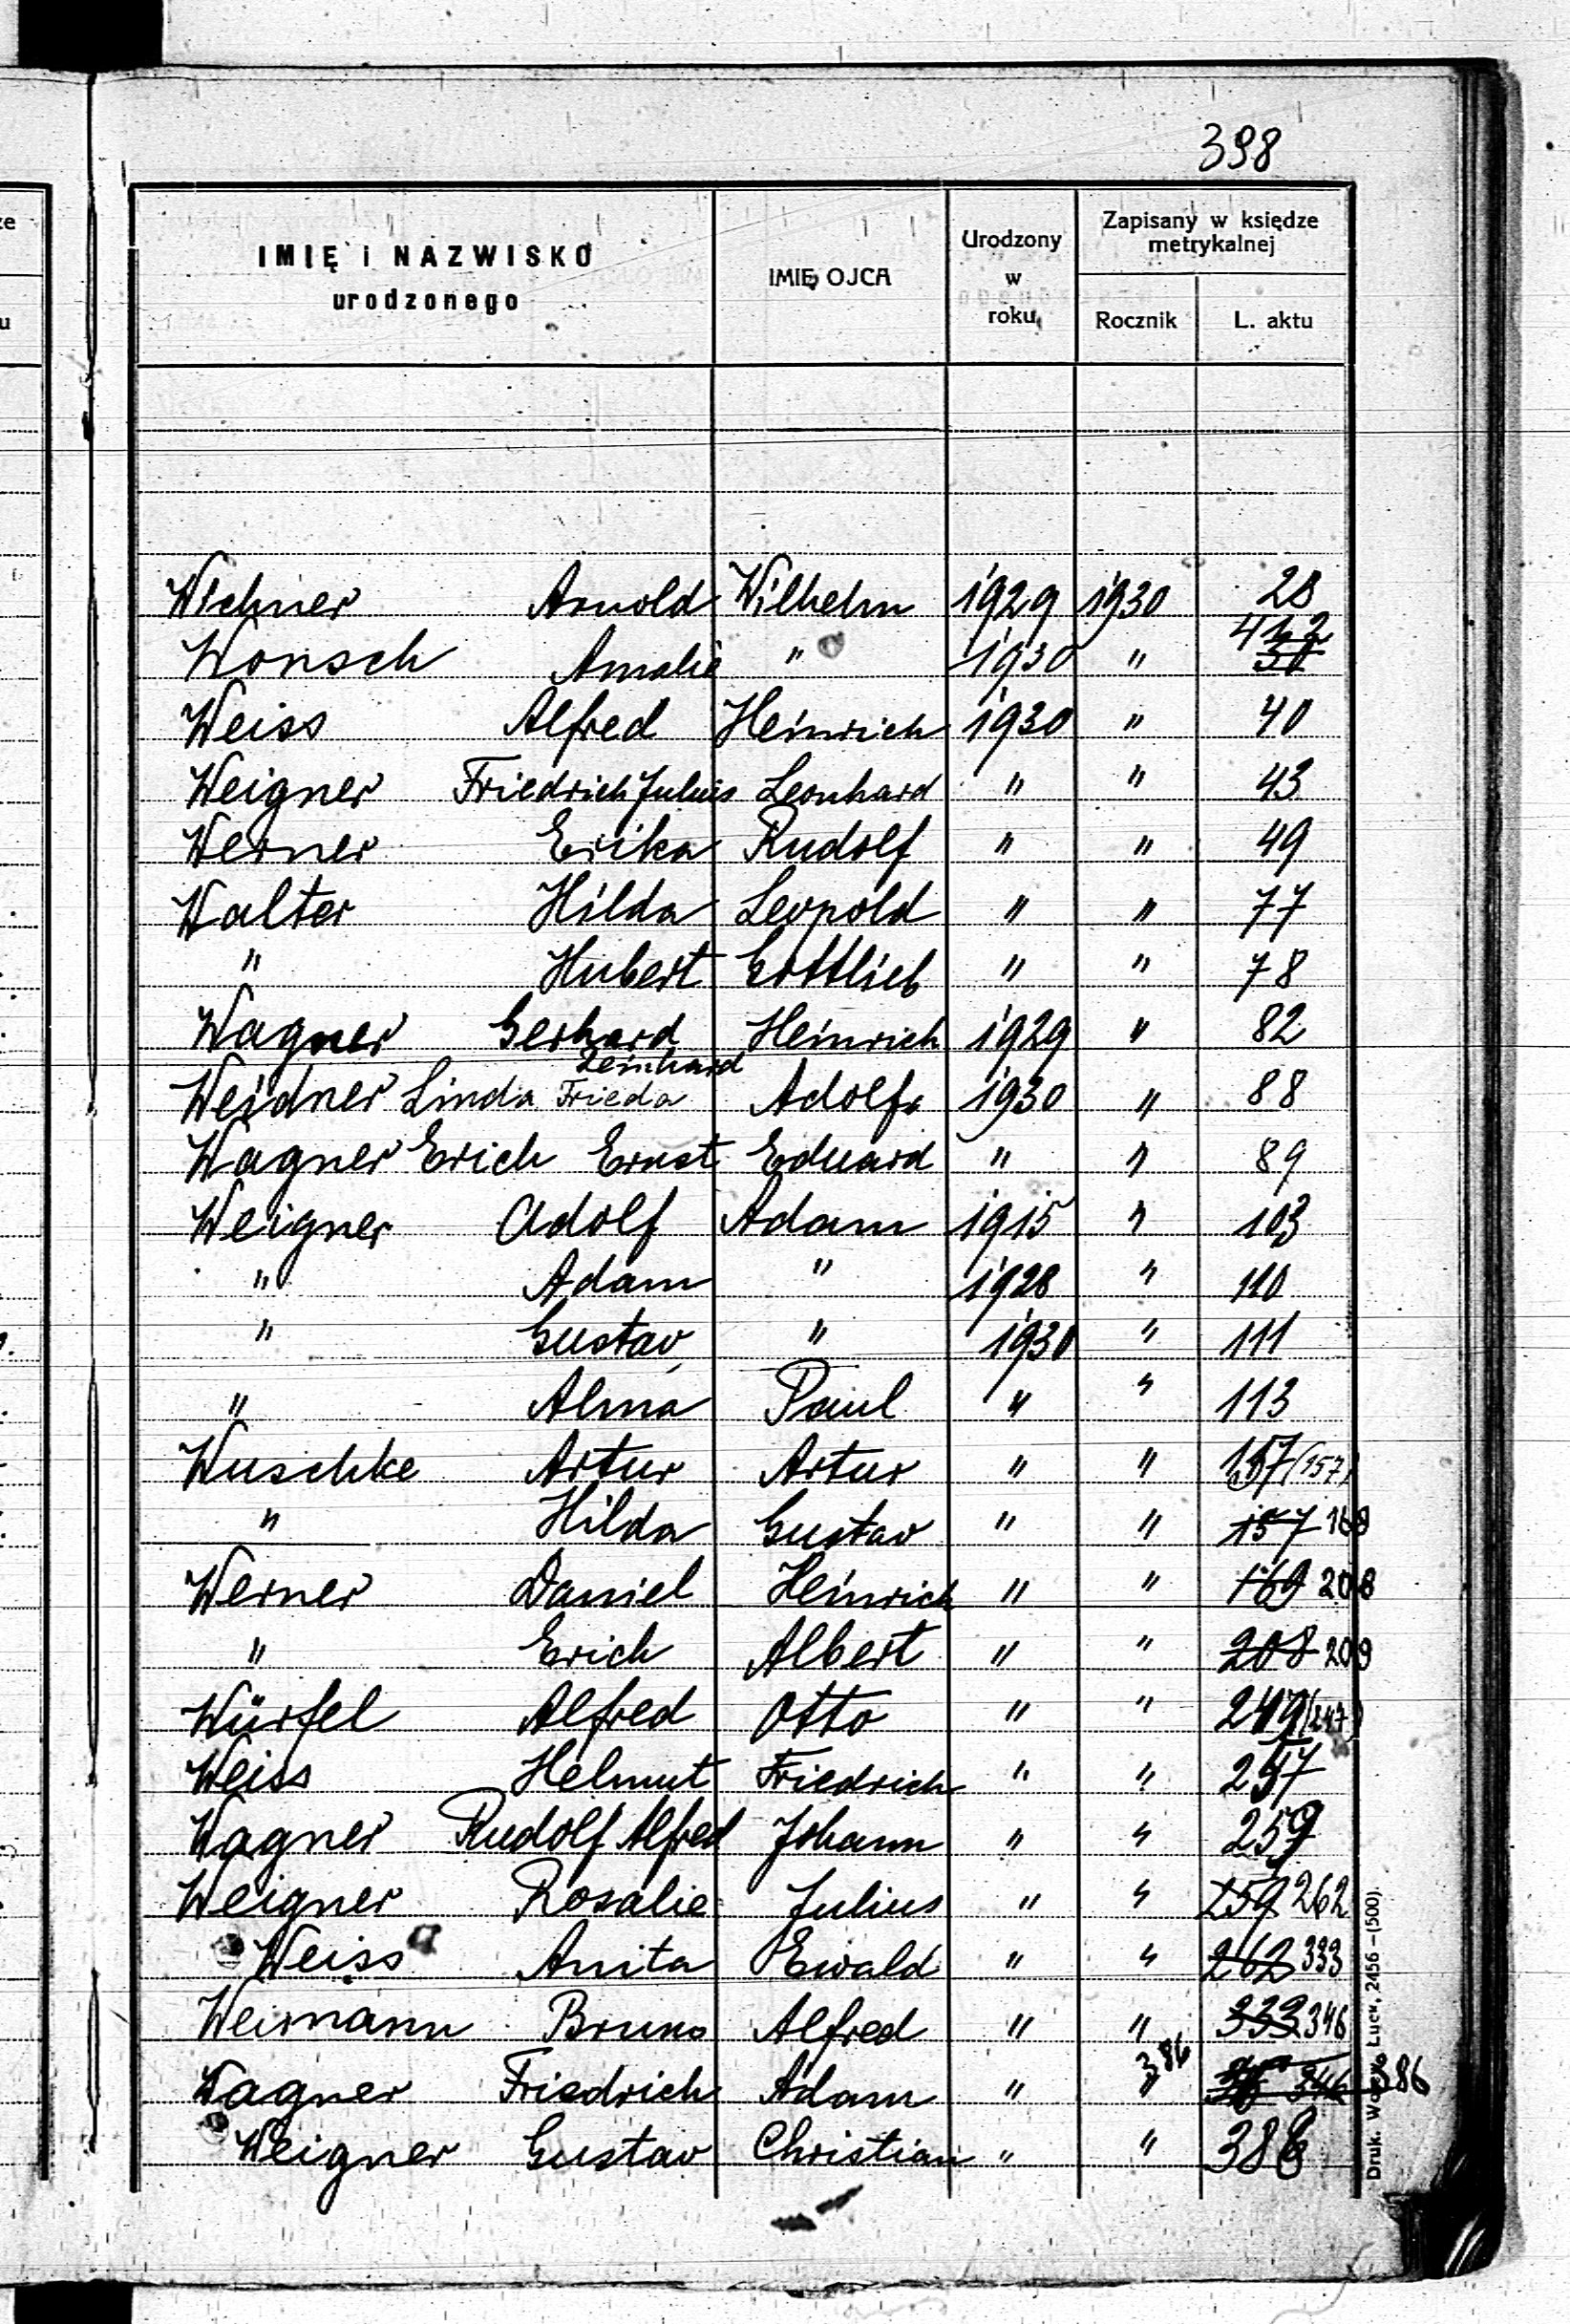 398
IMIĘ i NAZWISKO urodzonego | IMIĘ OJCA | Urodzony w roku | Zapisany w księdze metrykalnej
Rocznik | L. aktu
Wichner Arnold | Wilhelm | 1929 | 1930 | 28
Wonsch Amalie | " | 1930 | " | 30
Weiss Alfred | Heinrich | 1930 | " | 40
Weigner Friedrich Julius | Leonhard | " | " | 43
Werner Erika | Rudolf | " | " | 49
Walter Hilda | Leopold | " | " | 77
" Hubert | Gottlieb | " | " | 78
Wagner Gerhard | Heinrich | 1929 | " | 82
Reinhard
Weidner Linda Frieda | Adolf | 1930 | " | 88
Wagner Erich Ernst | Eduard | " | " | 89
Weigner Adolf | Adam | 1915 | " | 103
" Adam | " | 1928 | " | 110
" Gustav | " | 1930 | " | 111
" Alma | Paul | " | " | 113
Wuschke Artur | Artur | " | " | 157 (157)
" Hilda | Gustav | " | " | 157 168
Werner Daniel | Heinrich | " | " | 169 208
" Erich | Albert | " | " | 208 209
Würfel Alfred | Otto | " | " | 249 (247)
Weiss Helmut | Friedrich | " | " | 257
Wagner Rudolf Alfred | Johann | " | " | 259
Weigner Rosalie | Julius | " | " | 259 262
Weiss Anita | Ewald | " | " | 262 333
Weimann Bruno | Alfred | " | " | 333 346
386
Wagner Friedrich | Adam | " | " | 346 386
Weigner Gustav | Christian | " | " | 388
2456 – (500).